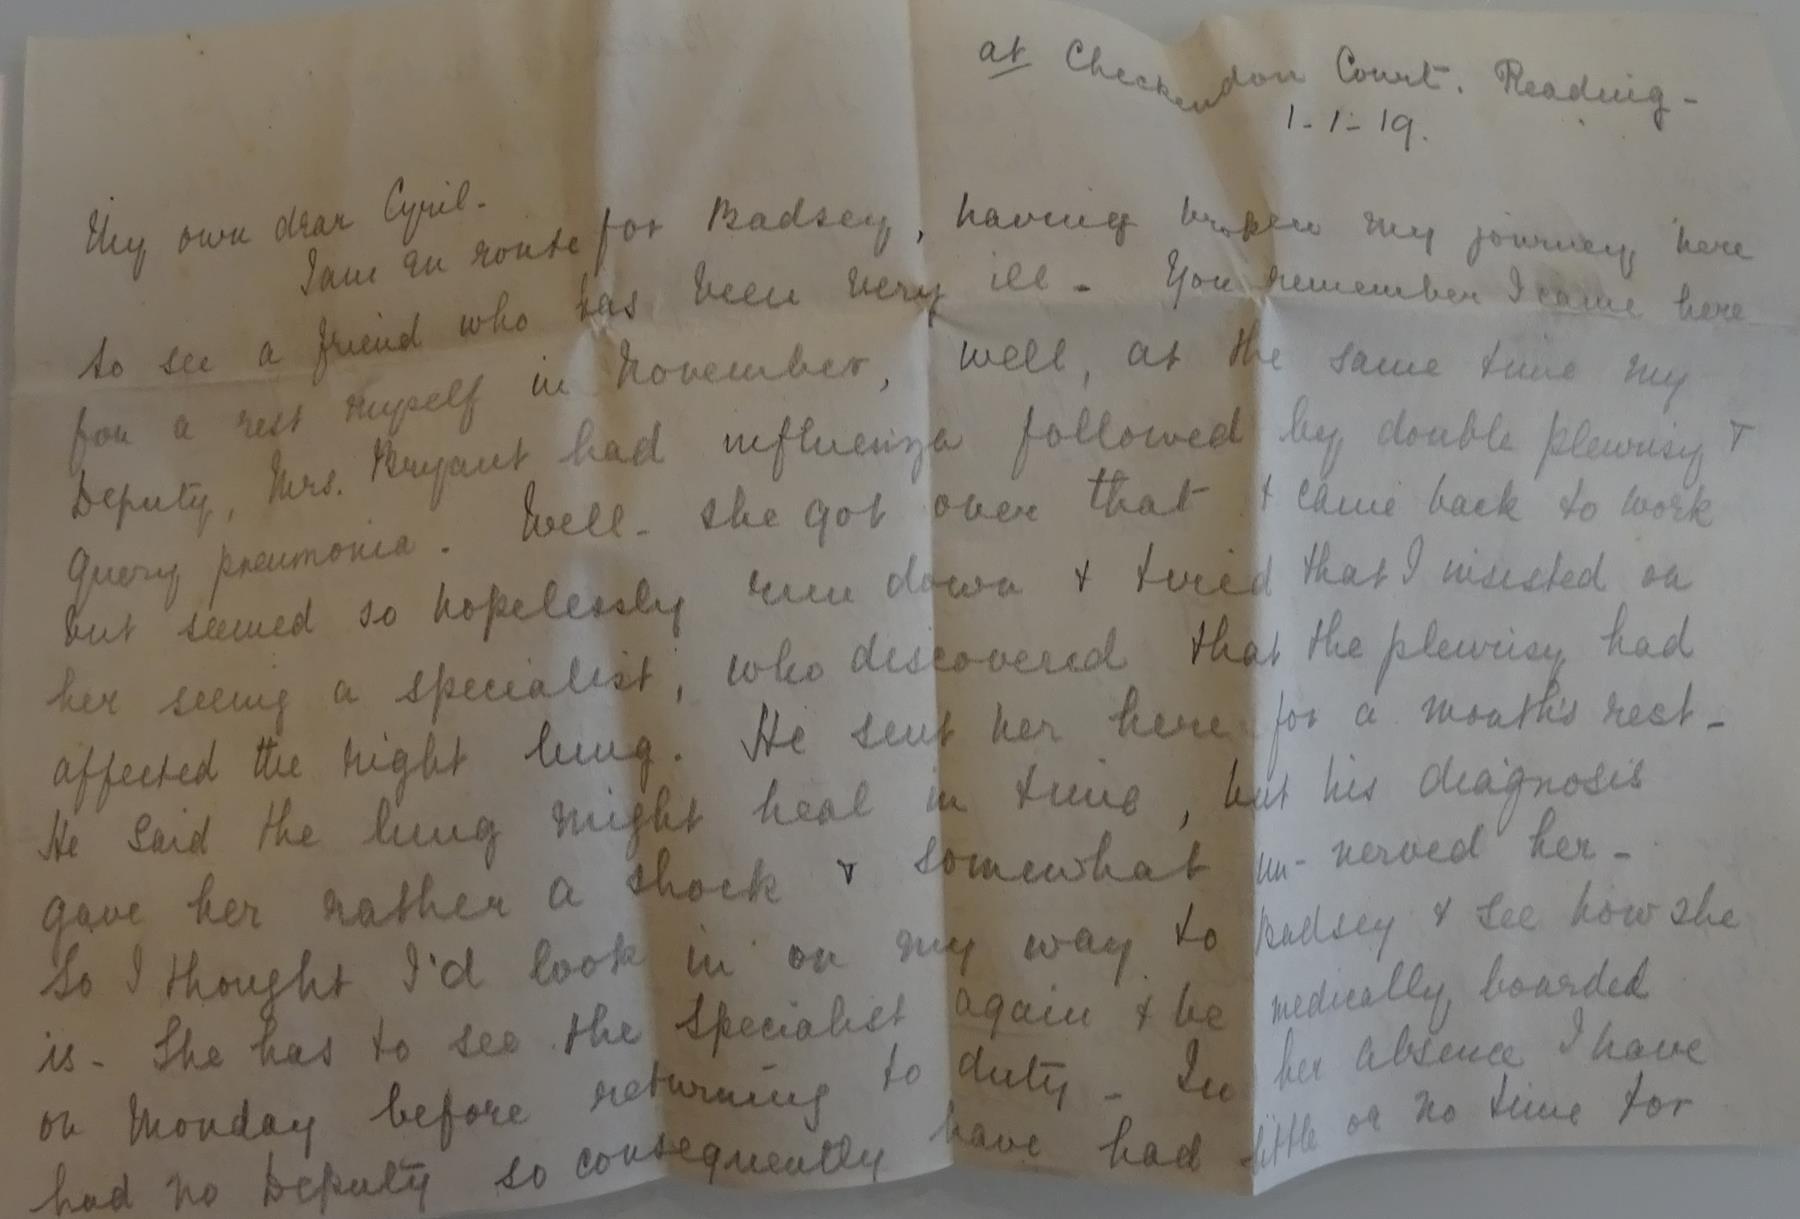 at Checkendon Court. Reading -
1-1-19.
My own dear Cyril -
I am en route for Badsey, having broken my journey here
to see a friend who has been very ill - You remember I came here
for a rest myself in November, well, at the same time my
Deputy, Mrs. Bryant had influenza followed by double pleurisy &
query pneumonia - Well - she got over that & came back to work
but seemed so hopelessly run down & tired that I insisted on
her seeing a specialist, who discovered that the pleurisy had
affected the right lung. He sent her here for a month's rest -
He said the lung might heal in time, but his diagnosis
gave her rather a shock & somewhat un-nerved her -
So I thought I'd look in on my way to Badsey & see how she
is - She has to see the specialist again & be medically boarded
on Monday before returning to duty - In her absence I have
had no Deputy so consequently have had little or no time for